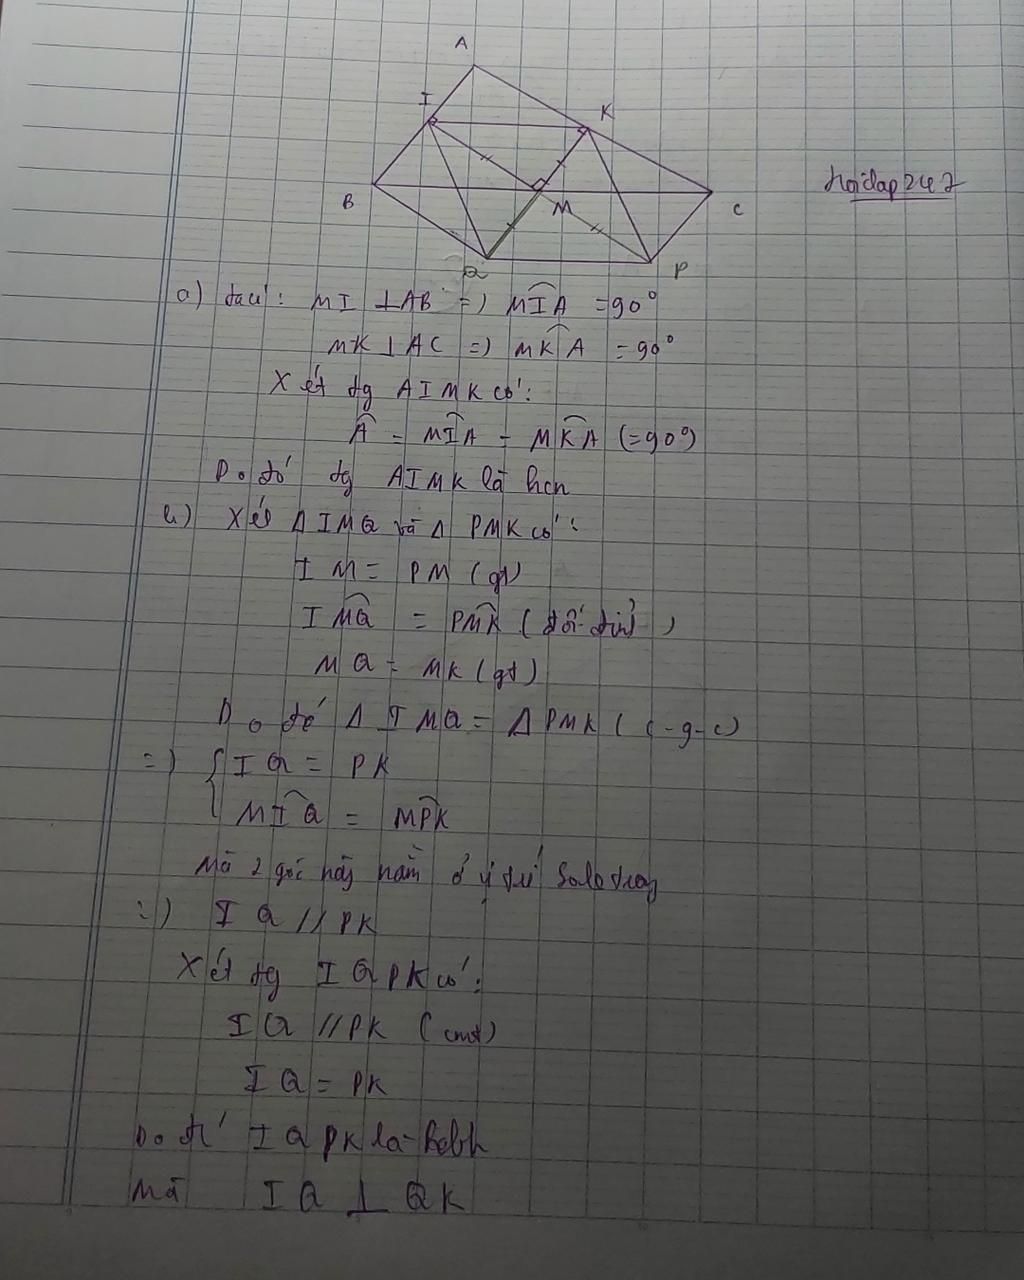 A
I
K
B
M
C
Q
P
hoidap247
a) taci: MI ⊥ AB => MIA = 90°
MK ⊥ AC => MKA = 90°
Xét tg AIMK có:
A = MIA = MKA (=90°)
Do đó tg AIMK là hcn
b) Xét Δ IMQ và Δ PMK có:
IM = PM (gt)
IMQ = PMK (đối đỉnh)
MQ = MK (gt)
Do đó Δ IMQ = Δ PMK (c-g-c)
=> { IQ = PK
MIQ = MPK
Mà 2 góc này nằm ở vị trí so le trong
=> IQ // PK
Xét tg IQPK có:
IQ // PK (cmt)
IQ = PK
Do đó IQPK là hbh
Mà IQ ⊥ QK